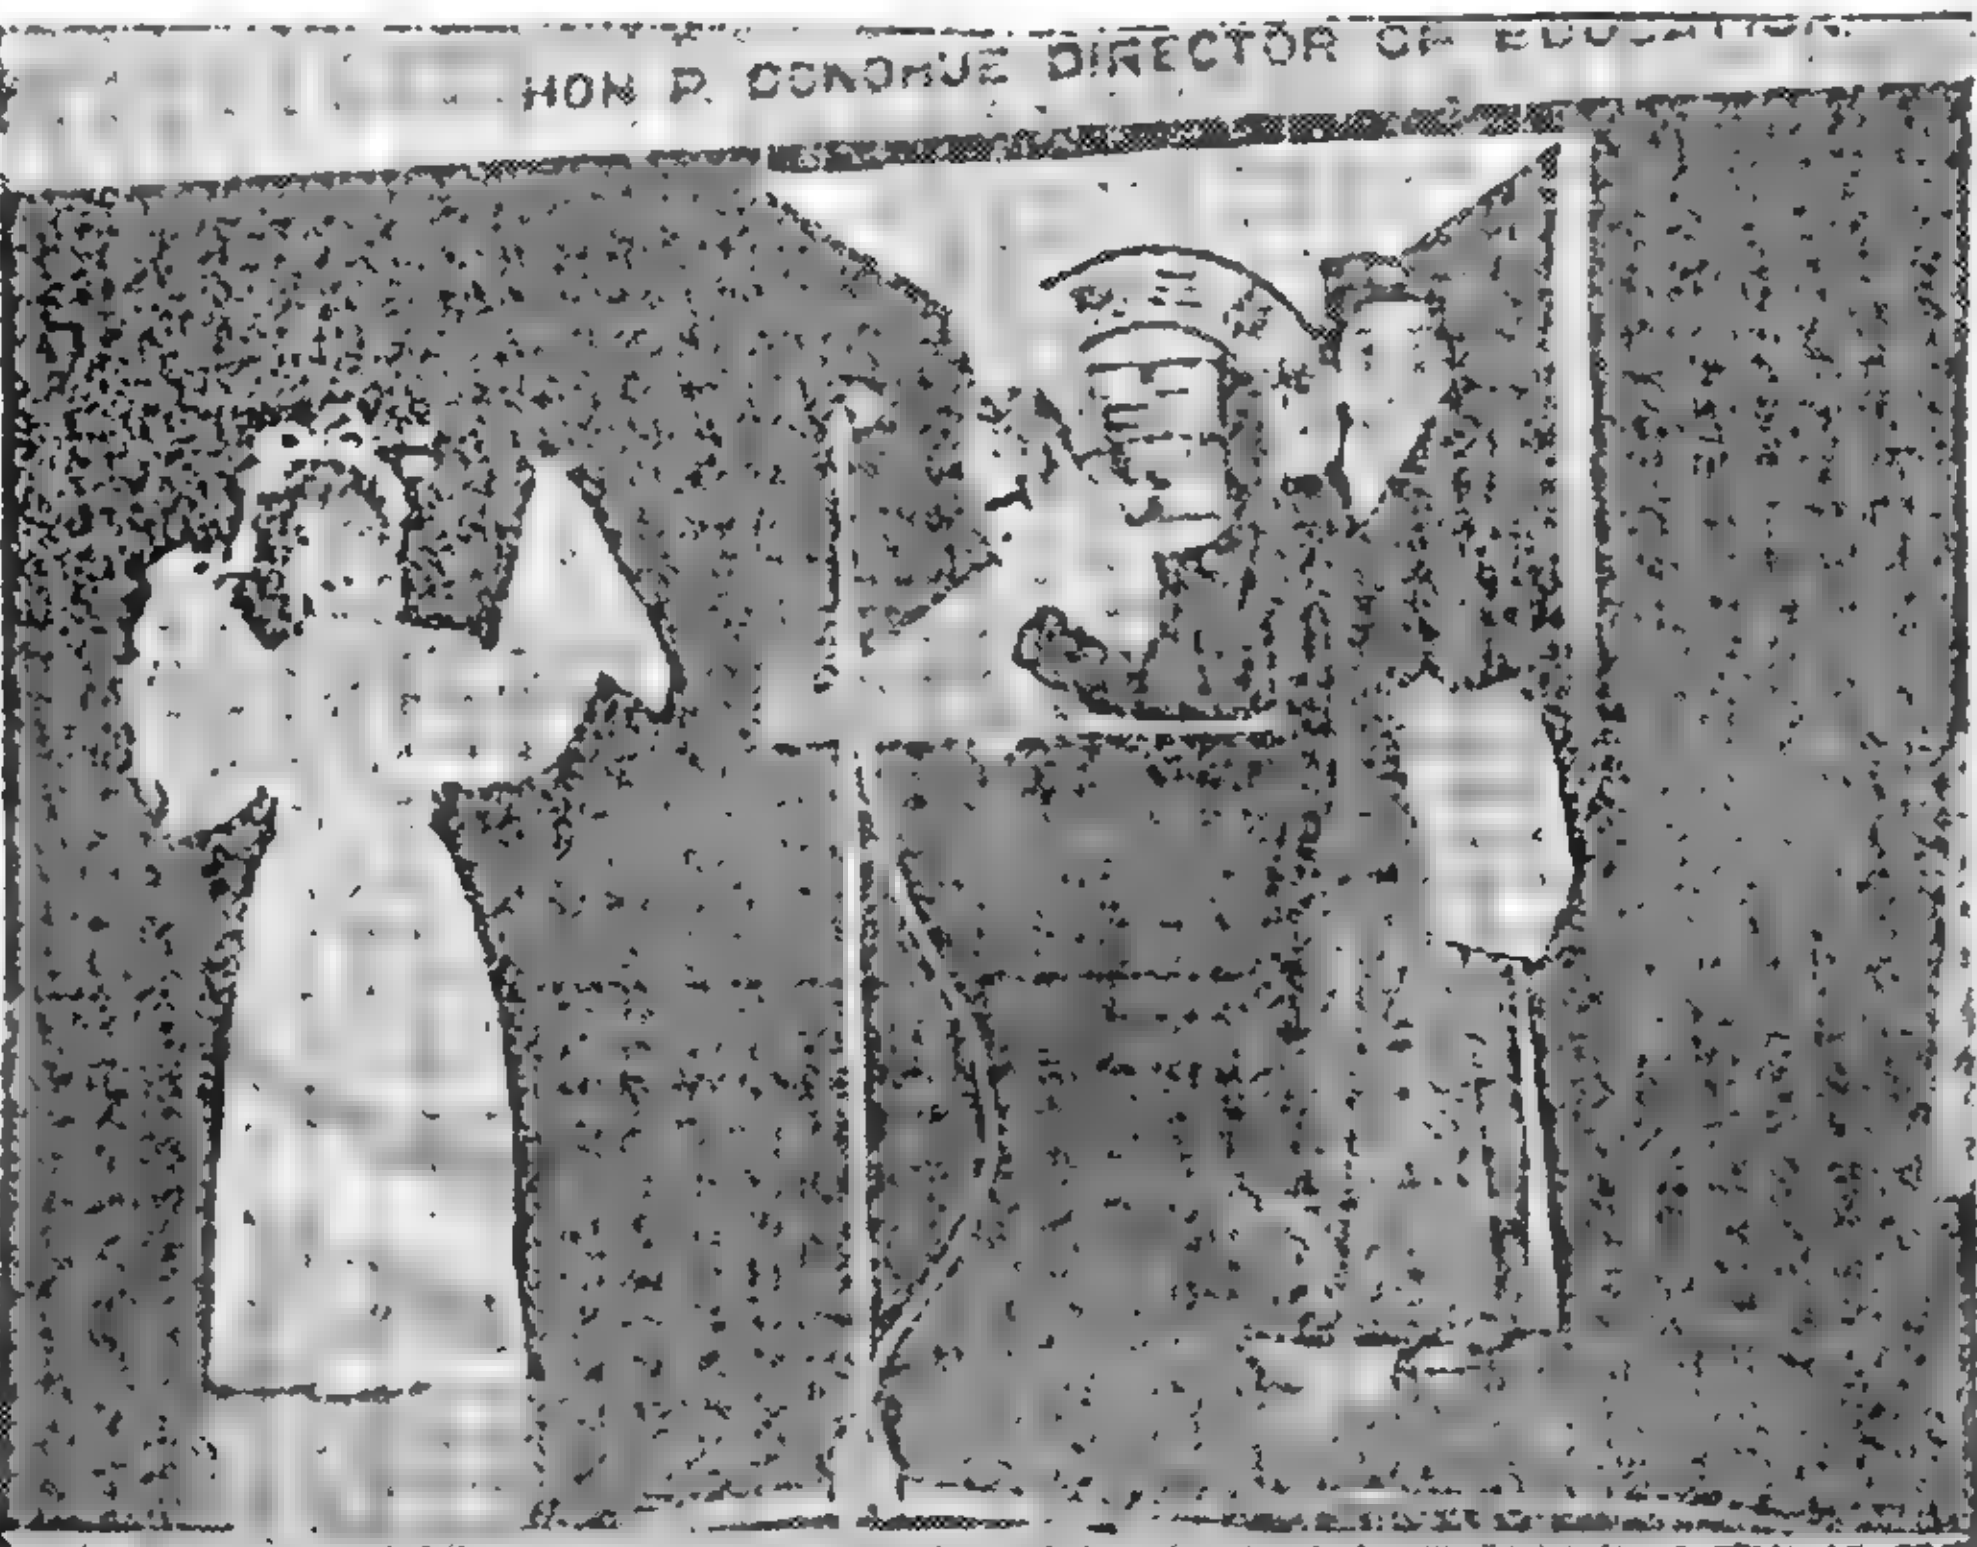 HON P. DONOHUE DIRECTOR OF EDUCATION.